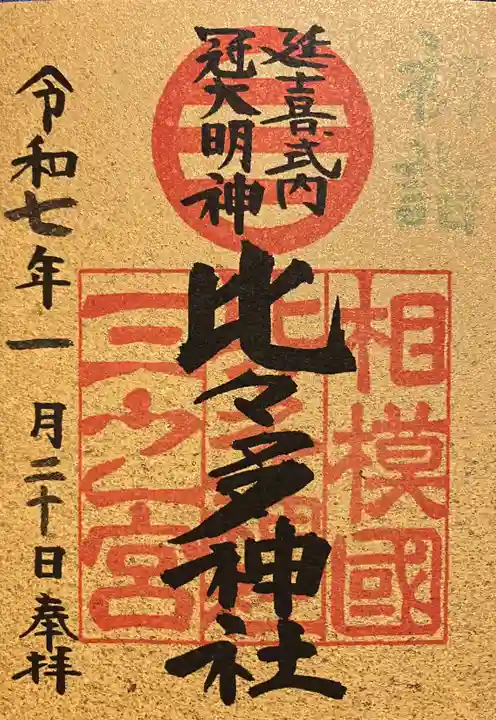 延喜式内
冠大明神
比々多神社
相模國
比々多神社
三之宮
令和七年一月二十日奉拝